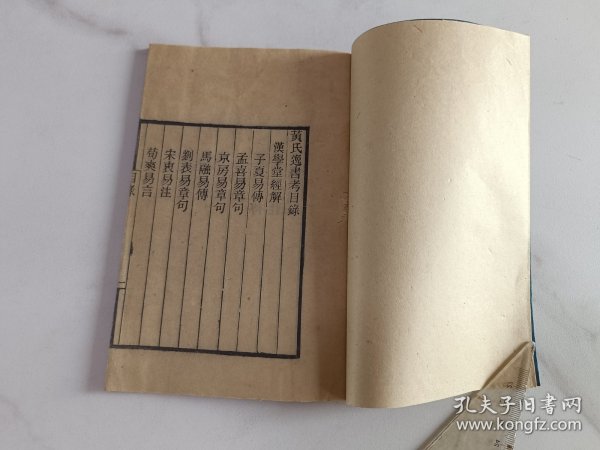 黃氏逸書考目錄
漢學堂經解
子夏易傳
孟喜易章句
京房易章句
馬融易傳
劉表易章句
宋衷易注
荀爽易言
目錄
一
孔夫子旧书网
www.kongfz.com